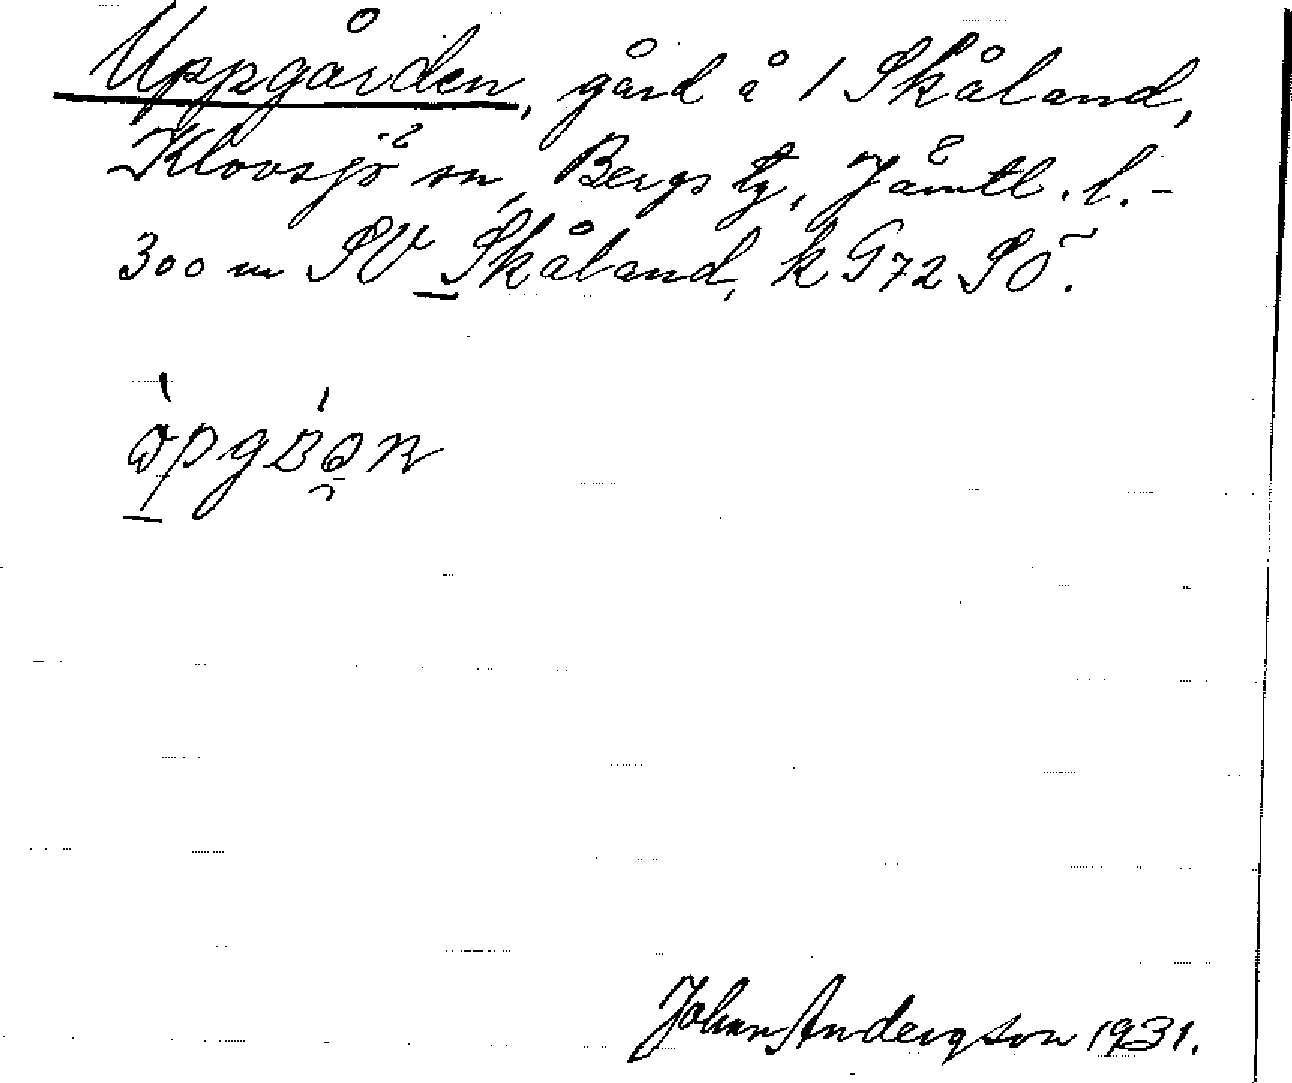 Uppgården, gård å 1 Skåland,
Klövsjö sn, Bergs tg, Jämtl. l. -
300 m SV Skåland, k G72 SÖ.
Johan Anderson 1931.